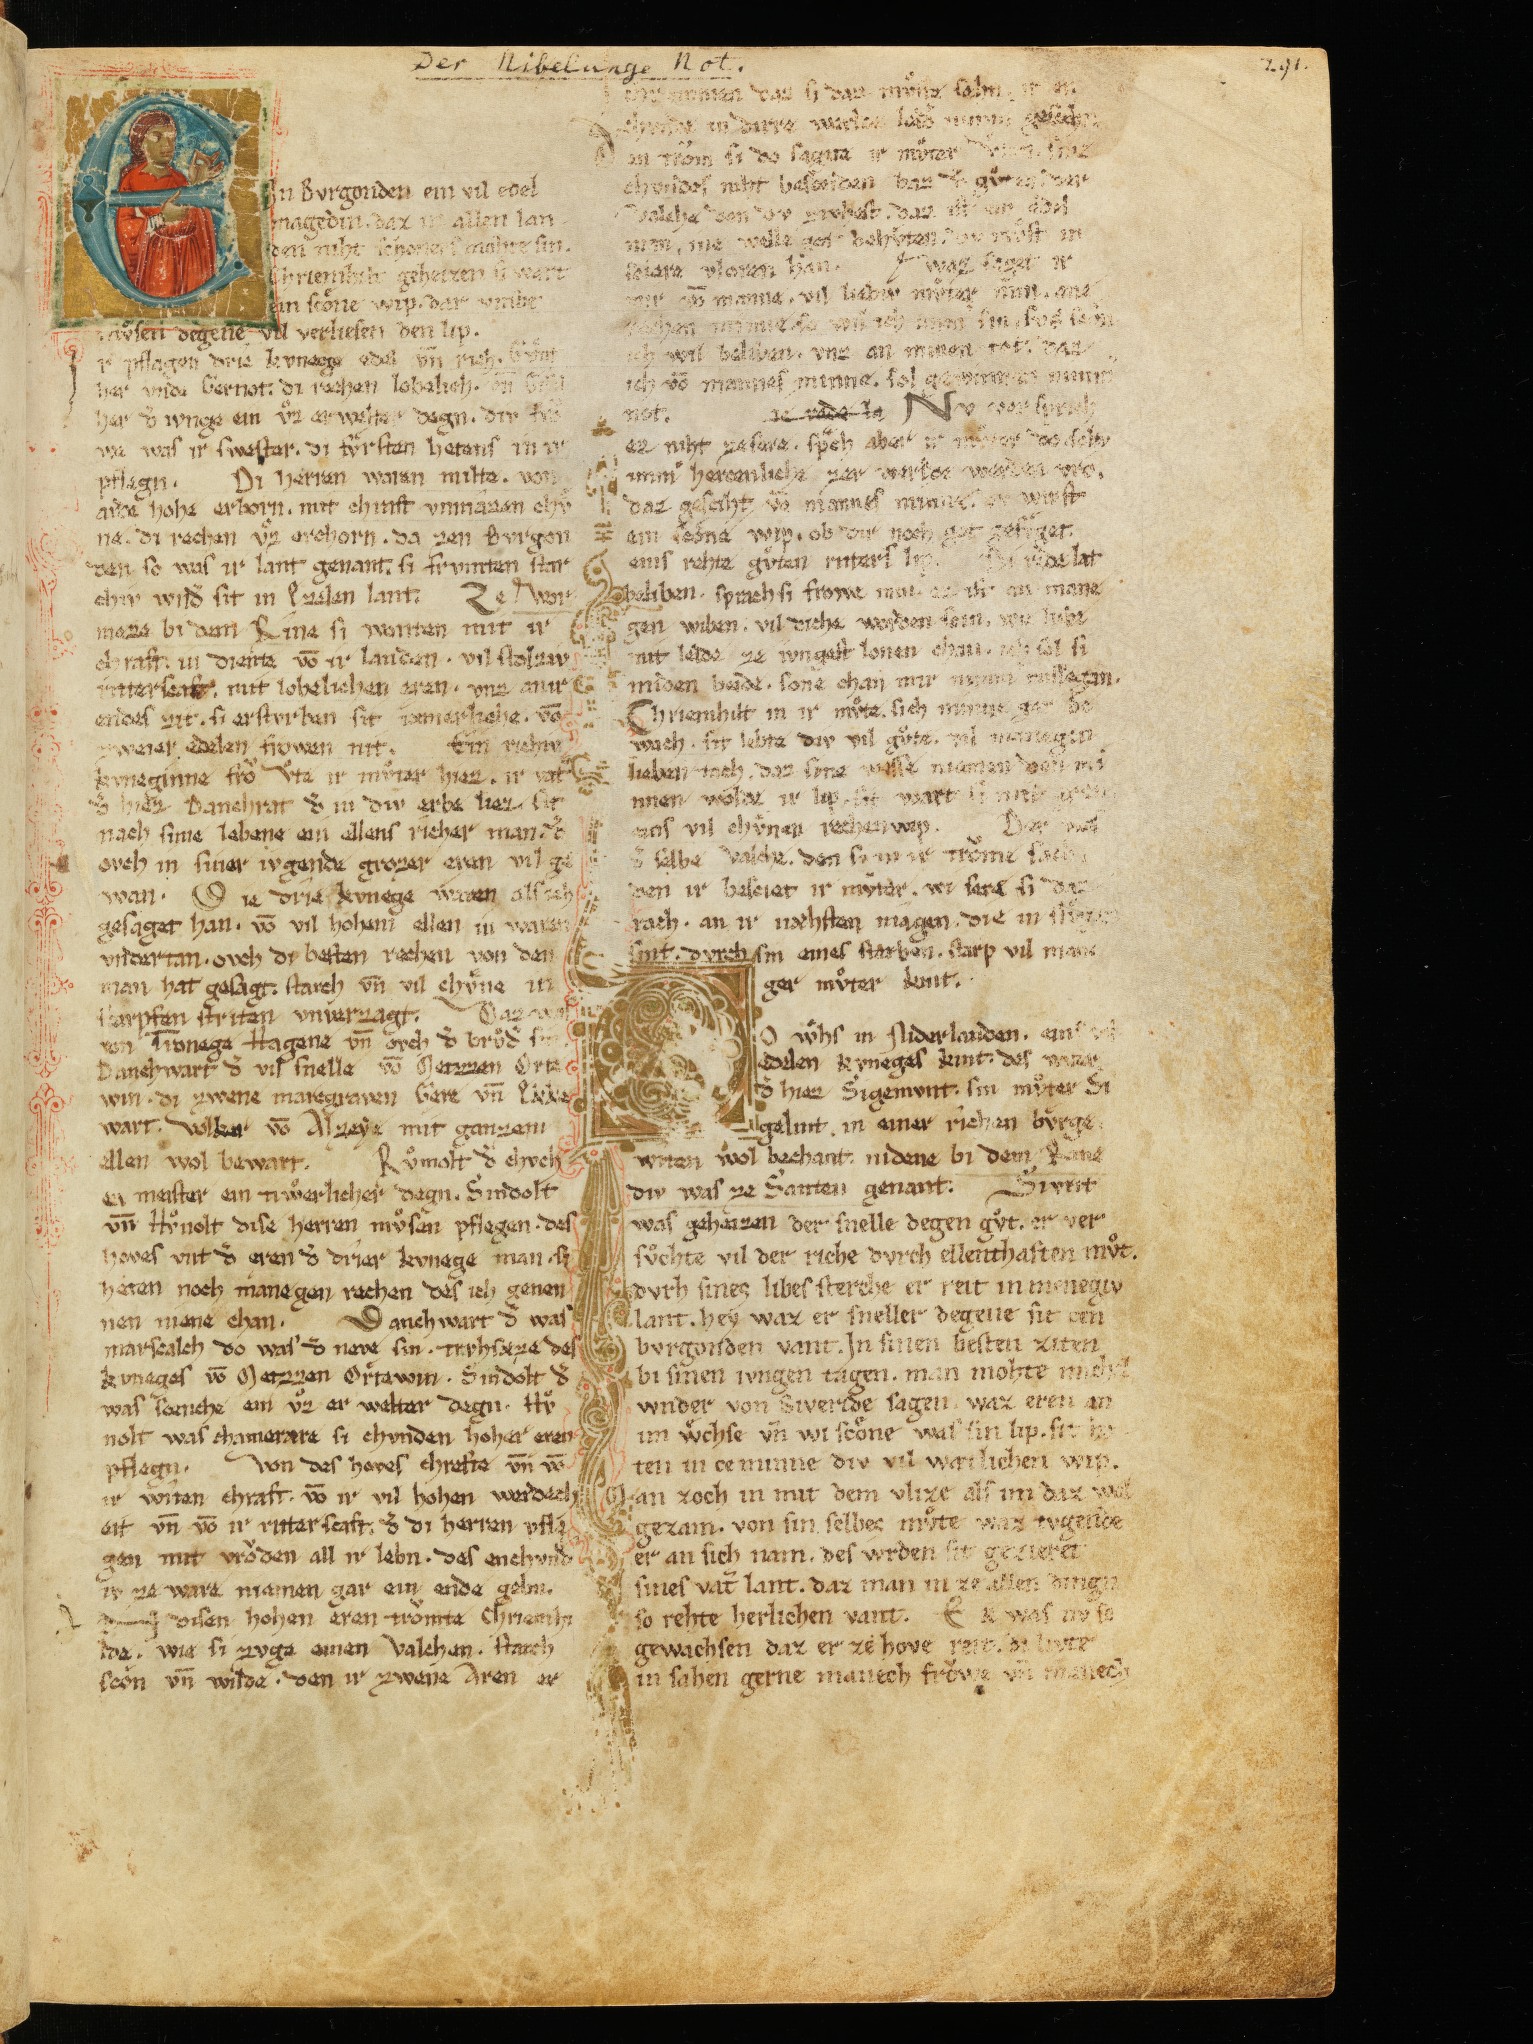 Der Nibelunge Not.
291.
In Bvrgonden ein vil edel
magedin. daz in allen lan
den niht schoners mohte sin.
Chriemhilt geheizen si wart
ein scoͤne wip. dar vmbe
mvͦsen degene vil verliesen den lip.
ir pflagen drie kvnege edel vn̄ rich. Gvnt
her vnde Gernot. di rechen lobelich. vn̄ Gisel
her d̕ ivnge ein vͦz erwelter degn. div frͦ
we was ir swester. di fvrsten hetens in ir
pflegn. Di herren waren milte. von
arde hohe erborn. mit chraft vnmazen chvͤ
ne. di rechen vͦz erchorn. da zen Bvrgon
den so was ir lant genant. si frvmten star
chiv wnd̕ sit in Ezelen lant. Ze Wor
meze bi dem Rine si wonten mit ir
chraft. in diente vō ir landen. vil stolziv
ritterscaft. mit lobelichen eren. vnz an ir
endes zit. si ersturben sit iæmerliche. vō
zweier edelen frowen nit. Ein richiv
kvneginne frͦ Vͦte ir mvͦter hiez. ir vat̕
d̕ hiez Danchrat d̕ in div erbe liez. sit
nach sime lebene ein ellens richer man. d̕
ovch in siner ivgende grozer eren vil ge
wan. Die drie kvnege waren als ich
gesaget han. vō vil hohem ellen in waren
vndertan. ovch di besten rechen von den
man hat gesagt. starch vn̄ vil chvͤne in
scarpfen striten vnverzagt. Daz was
von Tronege Hagene vn̄ ovch d̕ brvͦd̕ sin
Danchwart d̕ vil snelle vō Metzzen Orte
win. di zwene maregraven Gere vn̄ Ekke
wart. Volker vō Alzeye mit ganzem
ellen wol bewart. Rvͦmolt d̕ chvch
en meister ein tiwerlicher degn. Sindolt
vn̄ Hvͦnolt dise herren mvͦsen pflegen. des
hoves vnt d̕ eren d̕ drier kvnege man. si
heten noch manegen rechen des ich genen
nen niene chan. Danchwart d̕ was
marscalch do was d̕ neve sin. trvhsæze des
kvneges vō Metzzen Ortewin. Sindolt d̕
was scenche ein vͦz er welter degn. Hvͦ
nolt was chamerare si chvnden hoher eren
pflegn. Von des hoves chrefte vn̄ vō
ir witen chraft. vō ir vil hohen werdech
eit vn̄ vō ir ritterscaft. d̕ di herren pfla
gen mit vroͮden all ir lebn. des enchvnd
iv ze ware niemen gar ein ende gebn.
disen hohen eren troͮmte Chriemhi
lde. wie si zvge einen valchen. starch
scoͤn vn̄ wilde. den ir zwene Aren er
chrummen daz si daz mvͦste sehn. ir en
chvnde in dirre werlde leid̕ nimm̕ gescehn
en troͮm si do sagte ir mvͦter Vͦten. sine
chvndes niht besceiden baz d̕ gvͦten. der
valche den dv zivhest. daz ist ein edel
man. ine welle got behvͤten. dv mvͦst in
sciere vloren han. Waz saget ir
mir vō manne. vil liebiv mvͦter min. ane
rechen minne so wil ich imm̕ sin. svs scœn
ich wil beliben. vnz an minen tot. daz
ich vō mannes minne. sol gewinnen nimm̕
not. ie rede la Nv versprich
ez niht ze sere. sp̕ch aber ir mvͦter do. soltv
imm̕ hercenliche zer werlde werden vro.
daz gesciht vō mannes minne. dv wirst
ein scoͤne wip. ob dir noch got gefvͤget
eins rehte gvͦten ritters lip. Di rede lat
beliben. sprach si frowe min. ez ist an mane
gen wiben. vil diche worden scin. wi liebe
mit leide ze ivngest lonen chan. ich sol si
miden beide. sone chan mir nimm̕ missegan.
Chriemhilt in ir mvͦte. sich minne gar be
wach. sit lebte div vil gvͦte. vil manegen
lieben tach. daz sine wesse niemen den mi
nnen wolde ir lip. sit wart si mit eren
eins vil chvͤnen rechen wip. Der was
d̕ selbe valche. den si in ir troͮme sach.
den ir besciet ir mvͦter. wi sere si daz
rach. an ir næhsten magen. die in slvͦgen
sint. dvrch sin eines sterben. starp vil mane
ger mvͦter kint.
Do wͦhs in Niderlanden. eins vil
edelen kvneges kint. des vater
d̕ hiez Sigemvnt. sin mvͦter Si
gelint. in einer richen bvrge
witen wol bechant. nidene bi dem Rine
div was ze Santen genant. Sivrit
was geheizen der snelle degen gvͦt. er ver
svͦchte vil der riche dvrch ellenthaften mvͦt.
dvrh sines libes sterche er reit in menegiv
lant. hey waz er sneller degene sit cen
bvrgonden vant. In sinen besten ziten
bi sinen ivngen tagen. man mohte michel
wnder von Siverde sagen. waz eren an
im wͤchse vn̄ wi scoͤne was sin lip. sit he
ten in ce minne div vil wætlichen wip.
Man zoch in mit dem vlize als im daz wol
gezam. von sin selbes mvͦte waz tvgende
er an sich nam. des wrden sit gezieret
sines vat̕ lant. daz man in ze allen dingn
so rehte herlichen vant. Er was nv so
gewachsen daz er ze hove reit. di livte
in sahen gerne manech frowe vn̄ manech